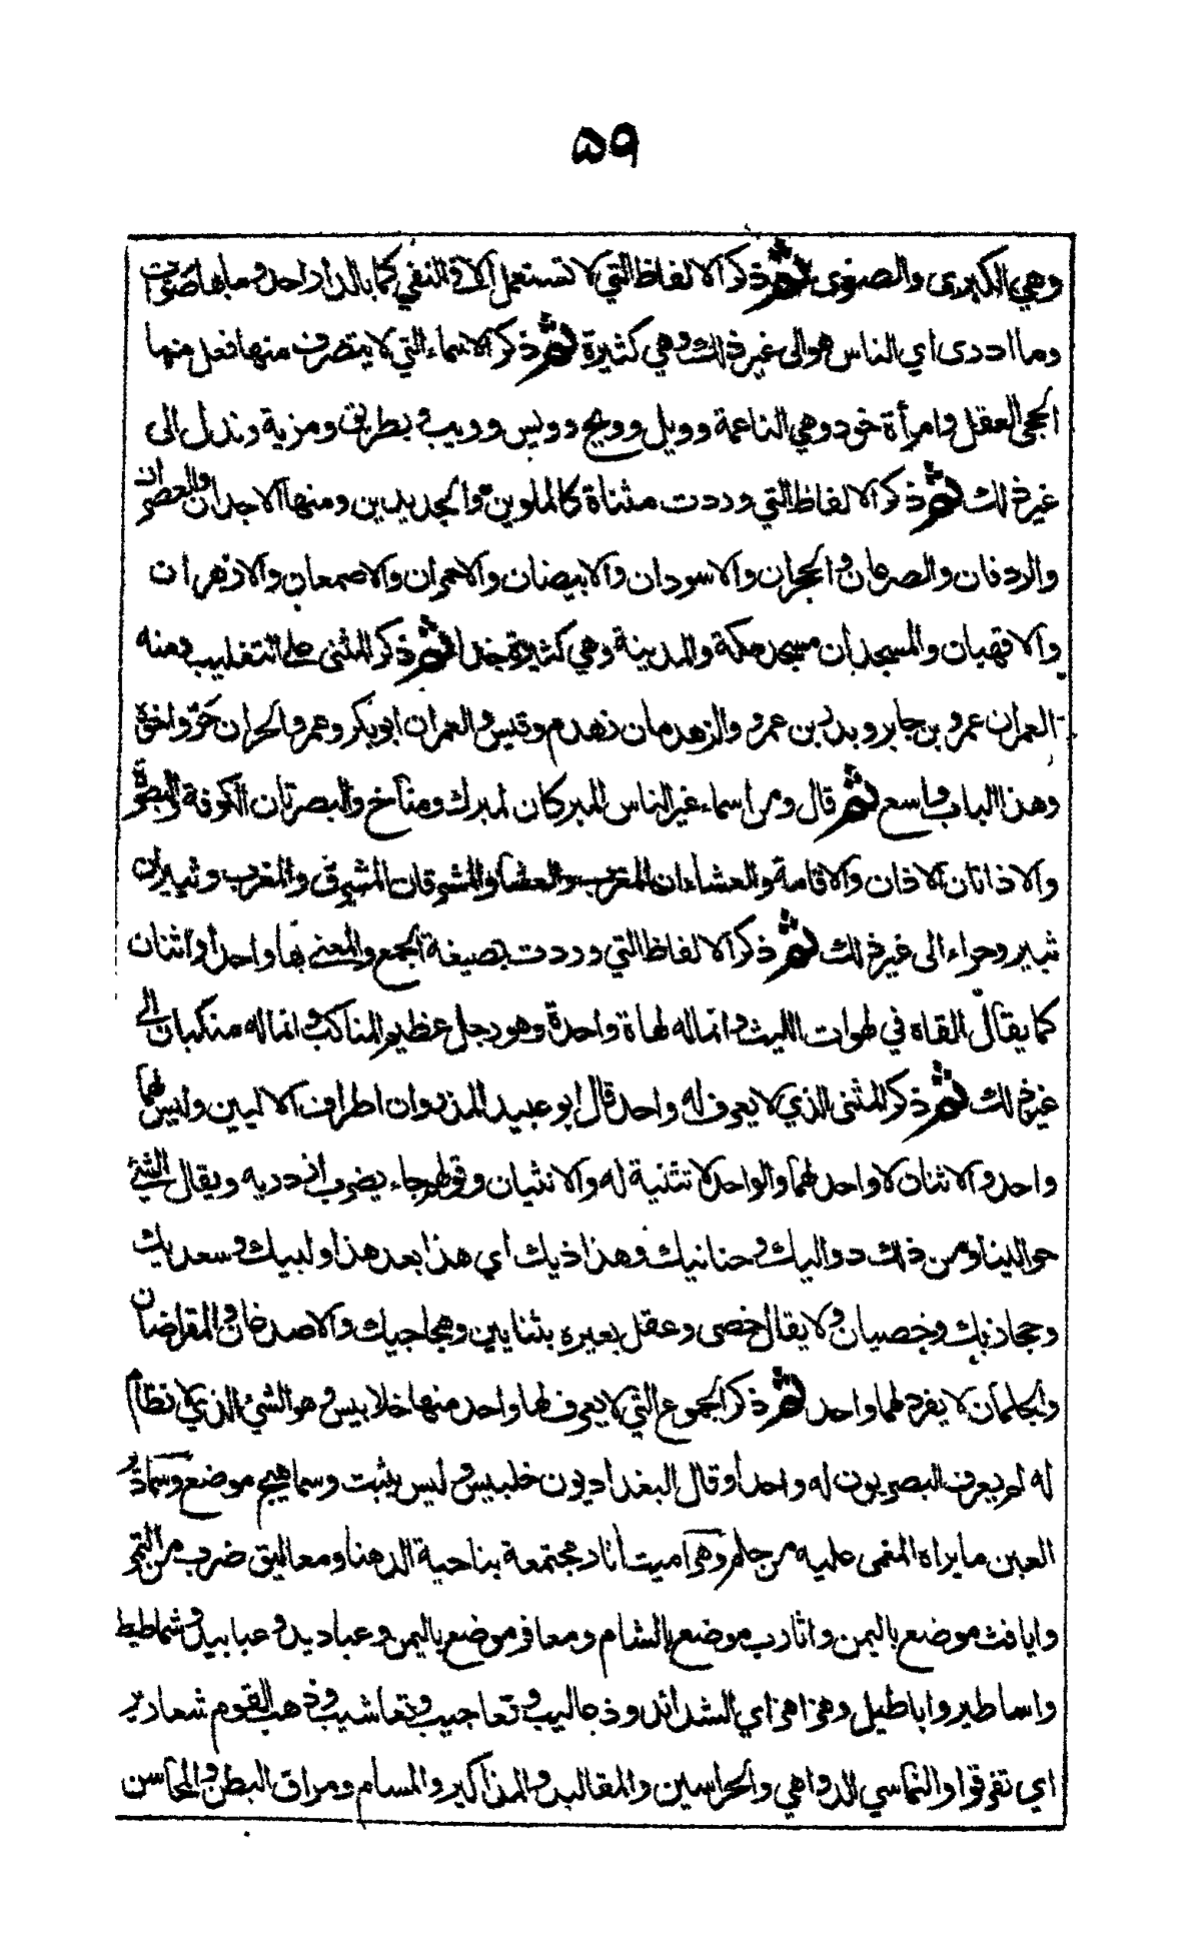 ٥٩
وهي الكبرى والصغرى ثم ذكر الالفاظ التي لا تستعمل الا في النفي كما بالدار احد وما بها صوت
وما ادرى اي الناس هو الى غير ذلك وهي كثيرة ثم ذكر الاسماء التي لا يتصرف منها فعل منها
الحجى العقل وامرأة خود وهي الناعمة وويل وويح وويس وويب وبطريق ومزية وندل الى
غير ذلك ثم ذكر الالفاظ التي وردت مثناة كالملوين والجديدين ومنها الاجدان والعصران
والردفان والصرعان والحجران والاسودان والابيضان والاحمران والاصمعان والازهران
والاقهبان والمسجدان مسجد مكة والمدينة وهي كثيرة جدا ثم ذكر المثنى على التغليب ومنه
العمران عمرو بن جابر وبدر بن عمرو والزهدمان زهدم وقيس والعمران ابو بكر وعمر والحران حر واخوه
وهذا الباب واسع ثم قال ومن اسماء غير الناس المبركان لمبرك ومناخ والبصرتان الكوفة والبصرة
والاذانان الاذان والاقامة والعشاءان المغرب والعشا والمشرقان المشرق والمغرب وثبيران
ثبير وحراء الى غير ذلك ثم ذكر الالفاظ التي وردت بصيغة الجمع والمعنى بها واحد او اثنان
كما يقال القاه في لهوات الليث وانما له لهاة واحدة وهو رجل عظيم المناكب وانما له منكبان الى
غير ذلك ثم ذكر المثنى الذي لا يعرف له واحد قال ابو عبيد المذروان اطراف الاليين وليس لهما
واحد والاثنان لا واحد لهما والواحد لا تثنية له والانثيان وقولهم جاء يضرب ازدريه ويقال الشيئ
حوالينا ومن ذلك دواليك وحنانيك وهذاذيك اي هذا بعد هذا ولبيك وسعديك
وحجازيك وخصيان ولا يقال خصى وعقل بعيره بثنايين وهجاجيك والاصدغان والمقراضان
والجلمان لا يفرد لهما واحد ثم ذكر الجموع التي لا يعرف لها واحد منها خلابيس وهو الشئ الذي لا نظام
له لم يعرف البصريون له واحدا وقال البغداديون خلبيس وليس بثبت وسماهيج موضع وسمادير
العين ما يراه المغمى عليه من حلم وهراميت آبار مجتمعة بناحية الدهنا ومعاليق ضرب من التمر
وايافث موضع باليمن واثارب موضع بالشام ومعافر موضع باليمن وعباديد وعبابيد وشماطيط
واساطير واباطيل وهزاهز اي الشدائد وذعاليب وتعاجيب وتعاشيب وذهب القوم شعارير
اي تفرقوا والتماسي الدواهي والحراسين والمقاليد والمذاكير والمسام ومراق البطن والمحاسن